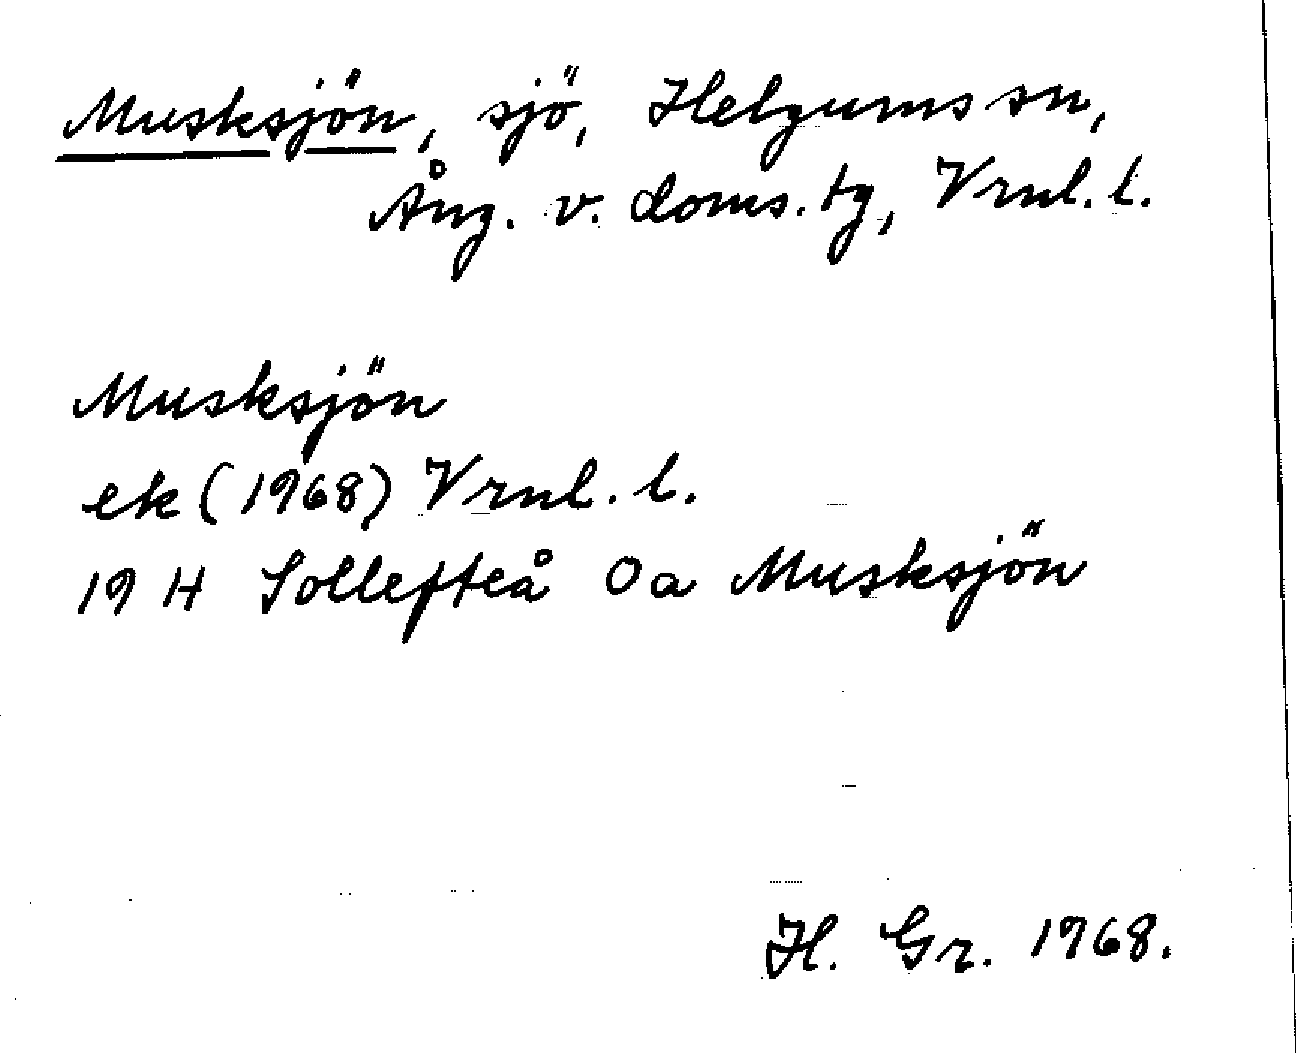 Musksjön, sjö, Helgums sn,
Ång. v. doms. tg, Vrnl. l.
Musksjön
ek (1968) Vrnl. l.
19 H Sollefteå 0a Musksjön
H. Gr. 1968.